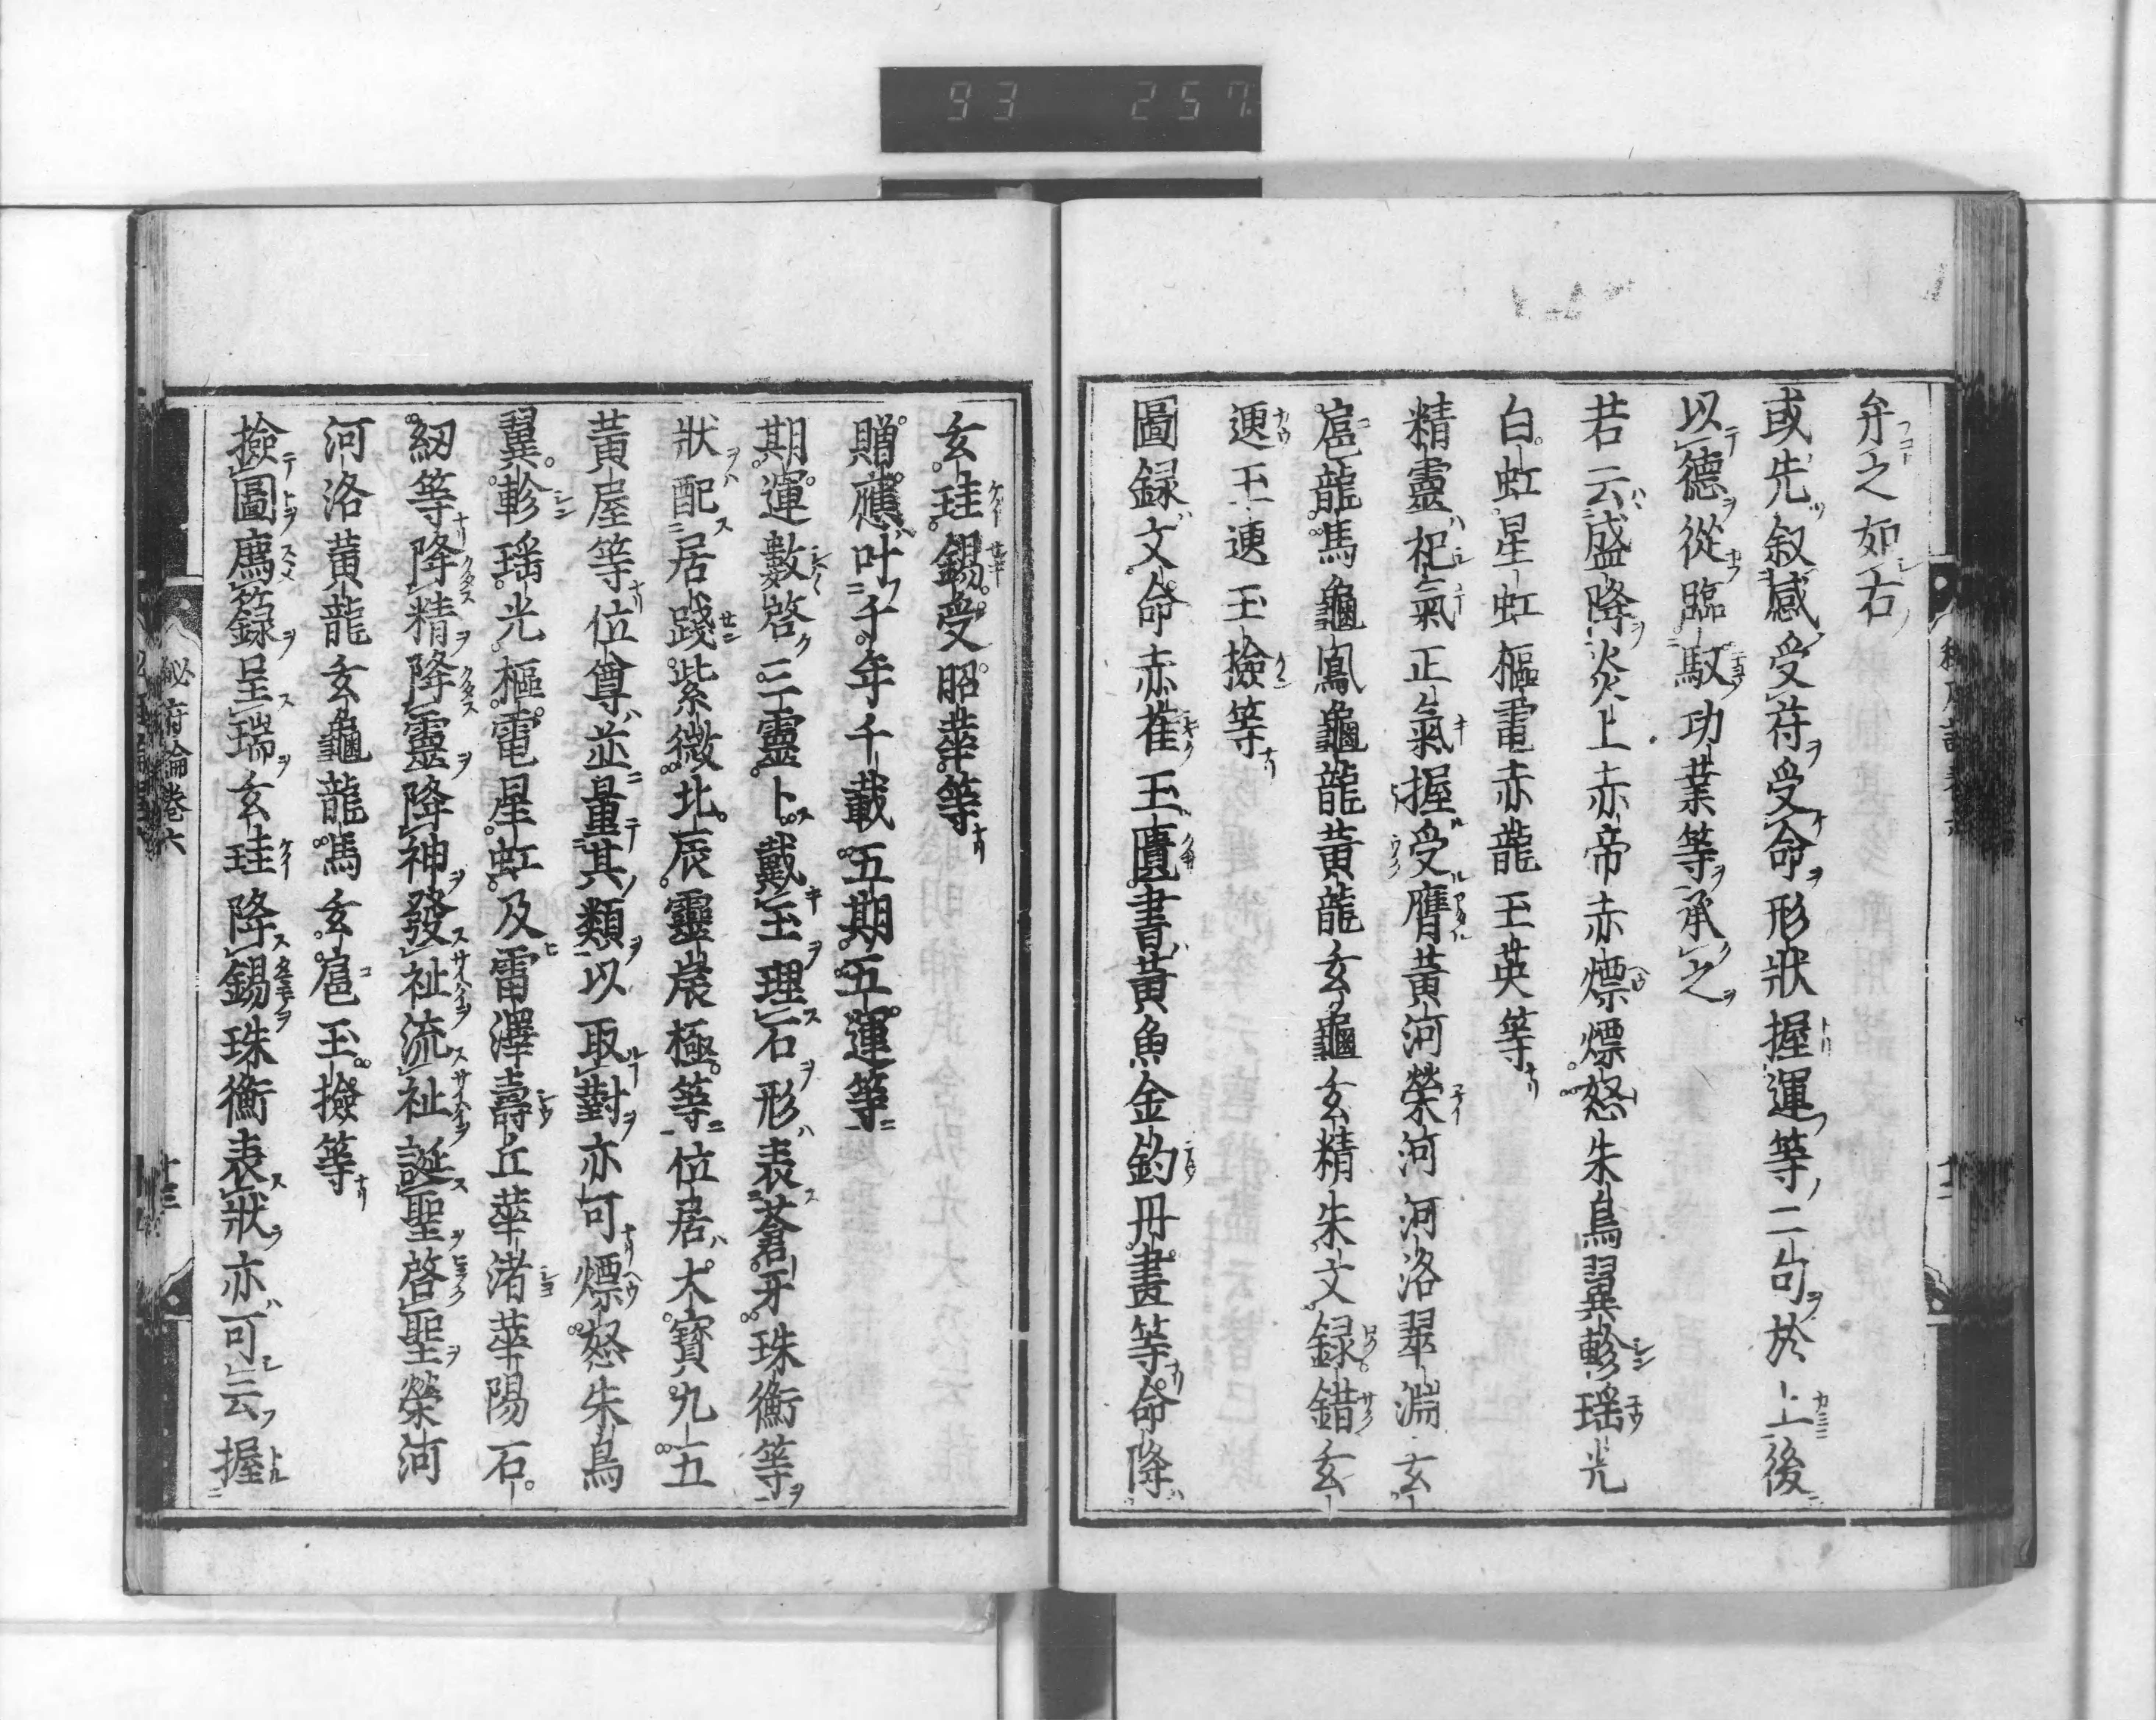 93 257
弁之如右
或先叙感受苻受命形狀握運等二句於上後
以德從臨馭功業等承之
若云盛降炎上赤帝赤熛熛怒朱鳥翼軫瑶光
白虹星虹樞電赤龍玉英等
精靈杞氣正氣握受膺黃河榮河河洛翠淵玄
扈龍馬龜鳳龜龍黃龍玄龜玄精朱文録錯玄
玉玉撿等
圖録文命赤雀玉匱書黃魚金鈎丹書等命降
玄珪錫受昭華等
贈應叶千年千載五期五運等
期運數啓三靈卜戴玉理石形表蒼牙珠衡等
狀配居踐紫微北辰靈宸極等位居大寶九五
黃屋等位尊並量其類以取對亦可熛怒朱鳥
翼軫瑶光樞電星虹及雷澤壽丘華渚華陽石
紐等降精降靈降神發祉流祉誕聖啓聖榮河
河洛黃龍玄龜龍馬玄扈玉撿等
撿圖膺籙呈瑞玄珪降錫珠衡表狀亦可云握
秘府論卷六
十三